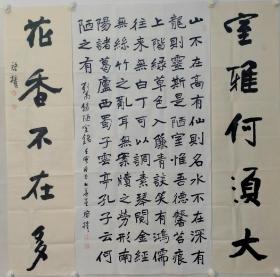 室雅何須大
山不在高有仙則名水不在深有
龍則靈斯是陋室惟吾德馨苔痕
上階綠草色入簾青談笑有鴻儒
往來無白丁可以調素琴閱金經
無絲竹之亂耳無案牘之勞形南
陽諸葛廬西蜀子雲亭孔子云何
陋之有
劉禹錫陋室銘
花香不在多